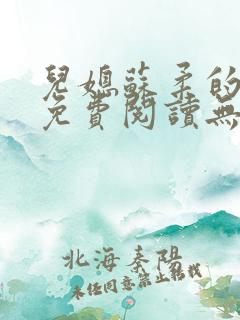 兒媳蘇柔的
免費閱讀無
北海秦陽
未經同意禁止轉載